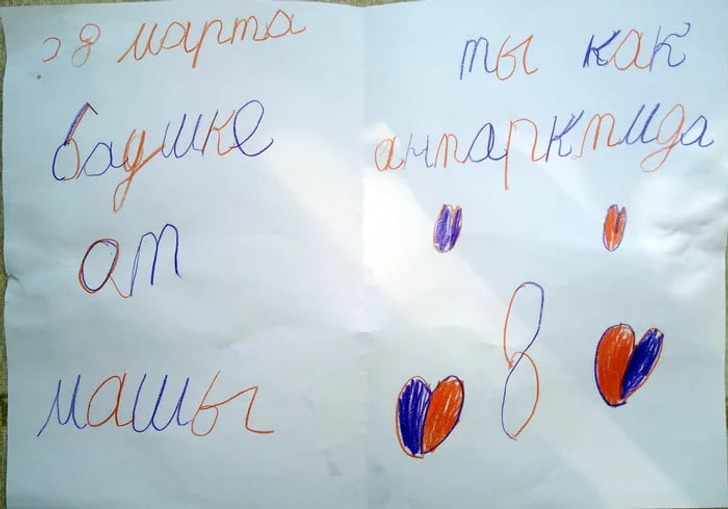 с 8 марта
бадушке
ат
машы
ты как
антарктида
8